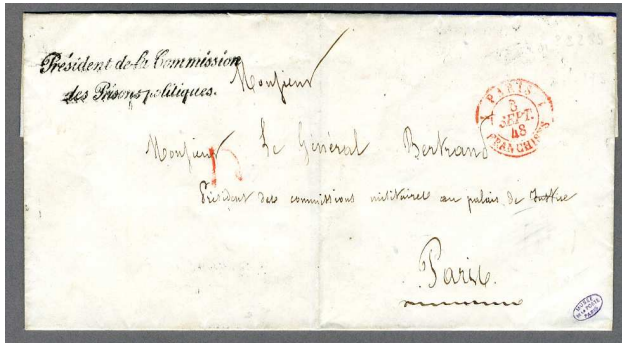 Président de la Commission
des Prisons politiques.
Monsieur
PARIS
3
SEPT.
48
FRANCHISES
Monsieur Le Général Bertrand
Président des commissions militaires au palais de Justice
Paris
MUSÉE
DE LA POSTE
PARIS